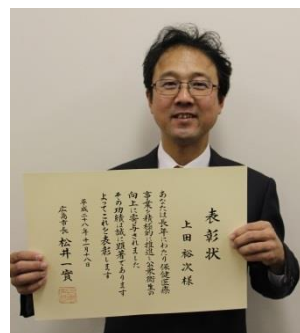 表彰状
上田裕次様
あなたは長年にわたり保健医療
事業を積極的に推進し公衆衛生の
向上に寄与されました
その功績は誠に顕著であります
よってこれを表彰します
平成二十八年十一月十八日
広島市長 松井一實